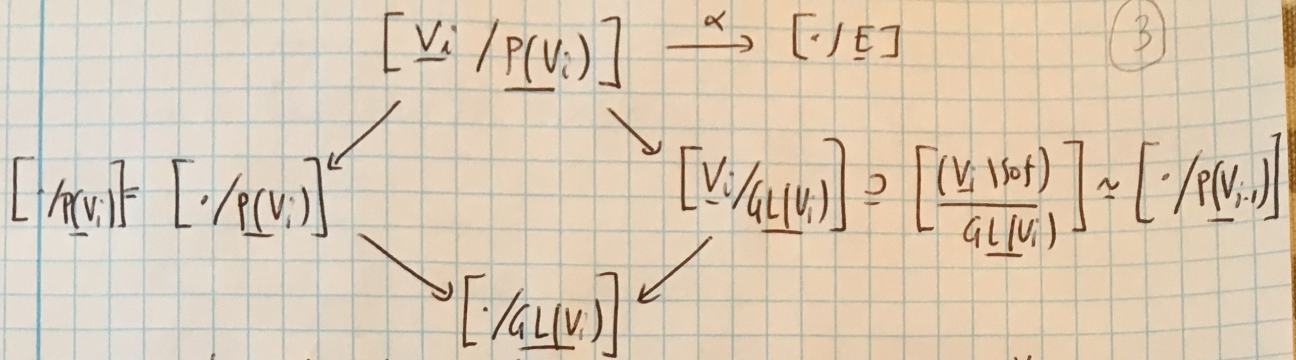 [V_i / P(V_i)] —α→ [·/E] ③
[·/P(V_i)] = [·/P(V_i)] [V_i/GL(V_i)] ⊇ [(V_i \ {0}) / GL(V_i)] ≃ [·/P(V_{i-1})]
[·/GL(V_i)]